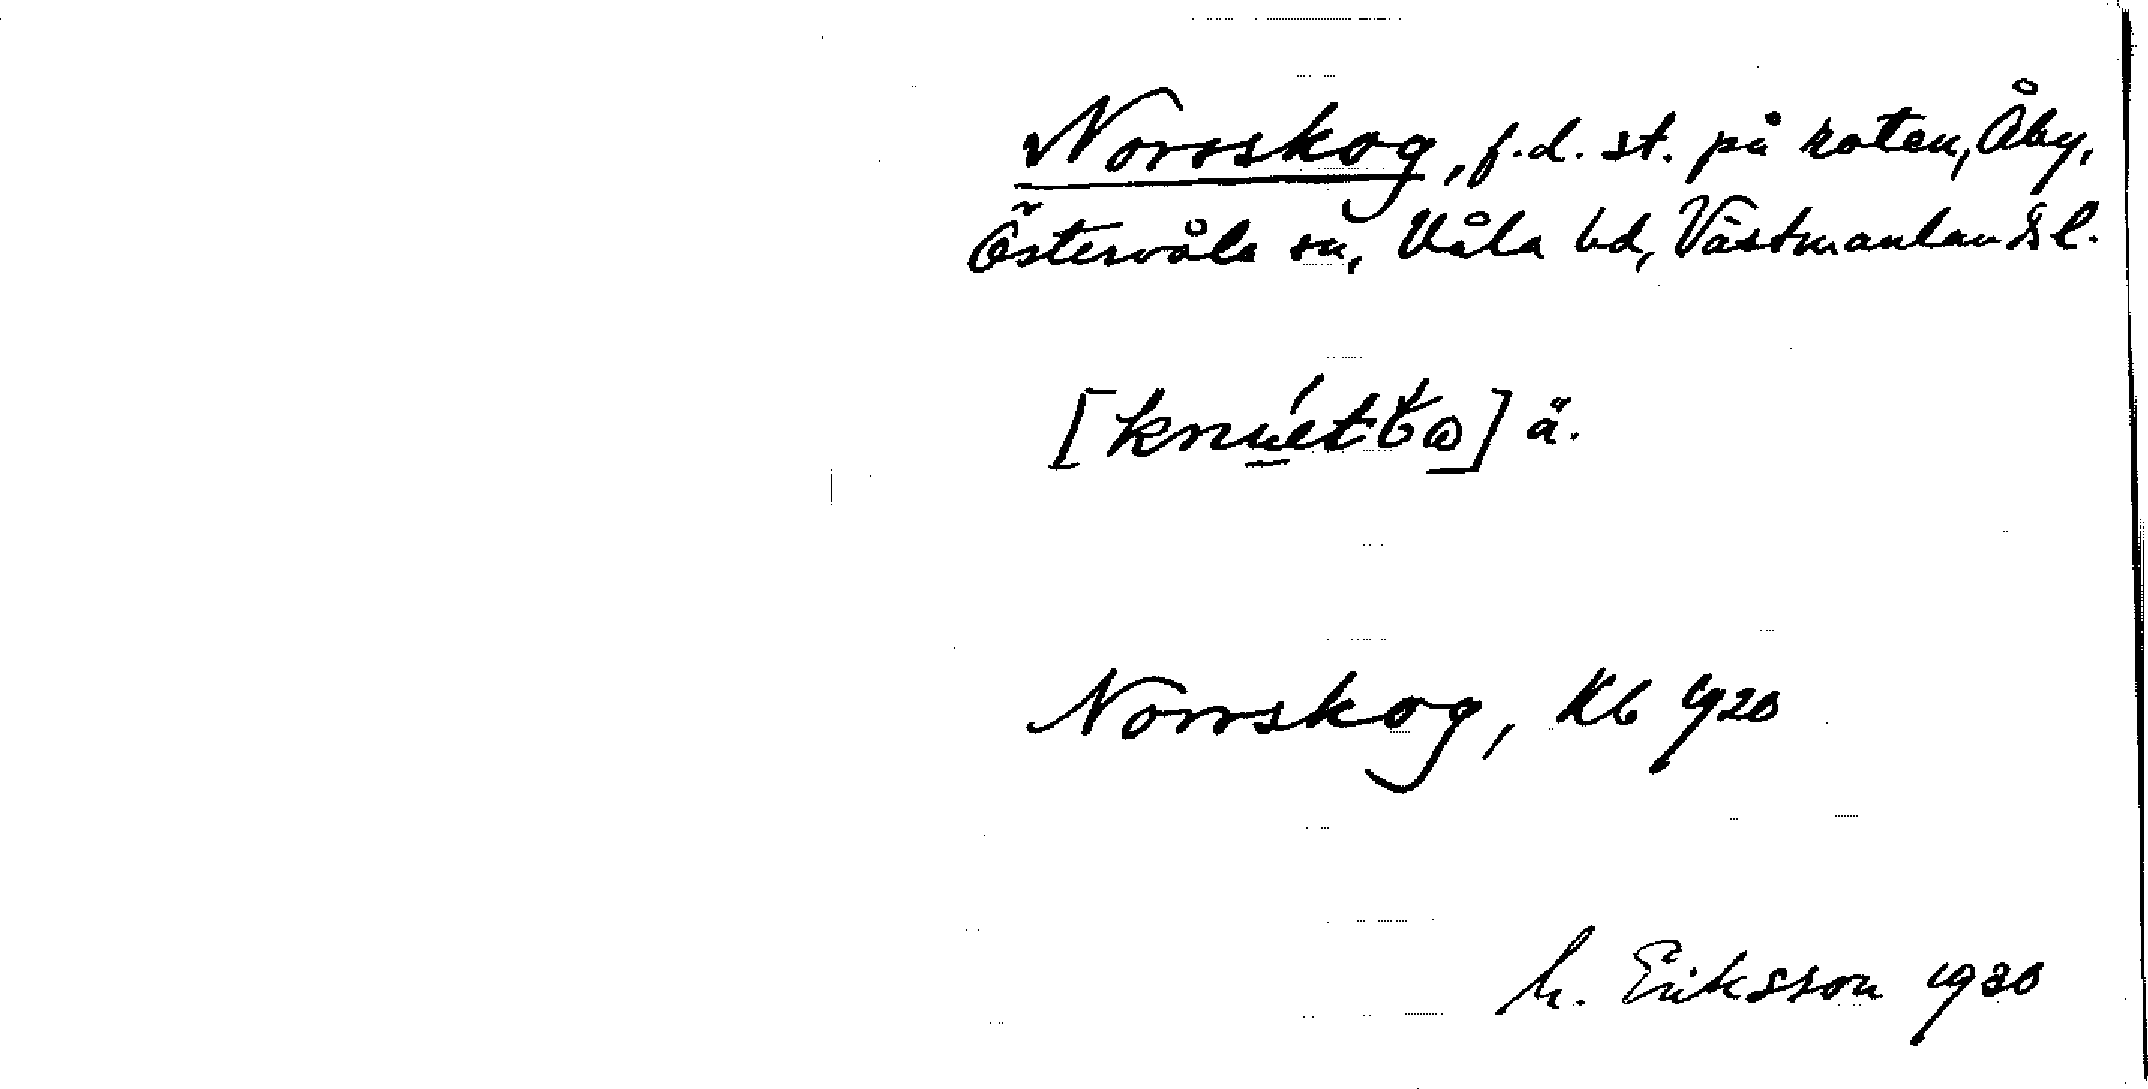 Norrskog, f.d. st. på roten, Åby,
Östervåla sn, Våla hd, Västmanlands l.
ä.
Norrskog, Kb 1920
M. Eriksson 1930